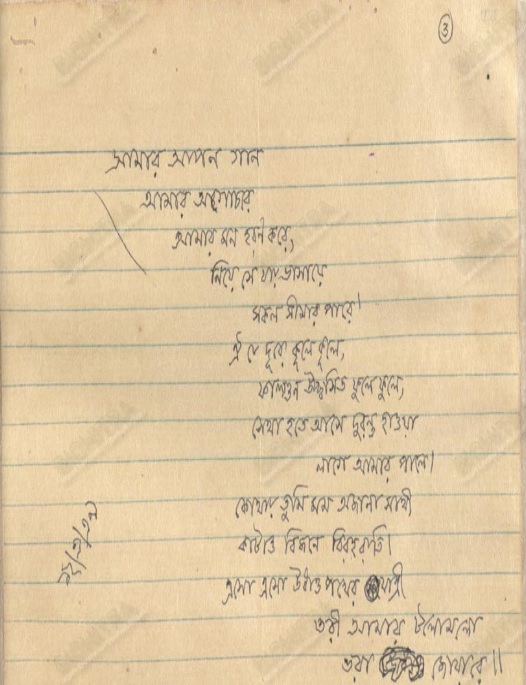 ৩
আমার আপন গান
আমার অগোচরে
আমার মন হরণ করে,
নিয়ে সে যায় ভাসায়ে
সকল সীমার পারে।
ঐ যে দূরে কূলে কূলে,
ফাল্গুন উচ্ছ্বসিত ফুলে ফুলে,
সেথা হতে আসে দুরন্ত হাওয়া
লাগে আমার পালে।
কোথায় তুমি মম অজানা সাথী
কাটাও বিজনে বিরহরাতি।
এসো এসো উধাও পথের যাত্রী
তরী আমার টলোমলো
ভরা জোয়ারে॥
BICHITRA